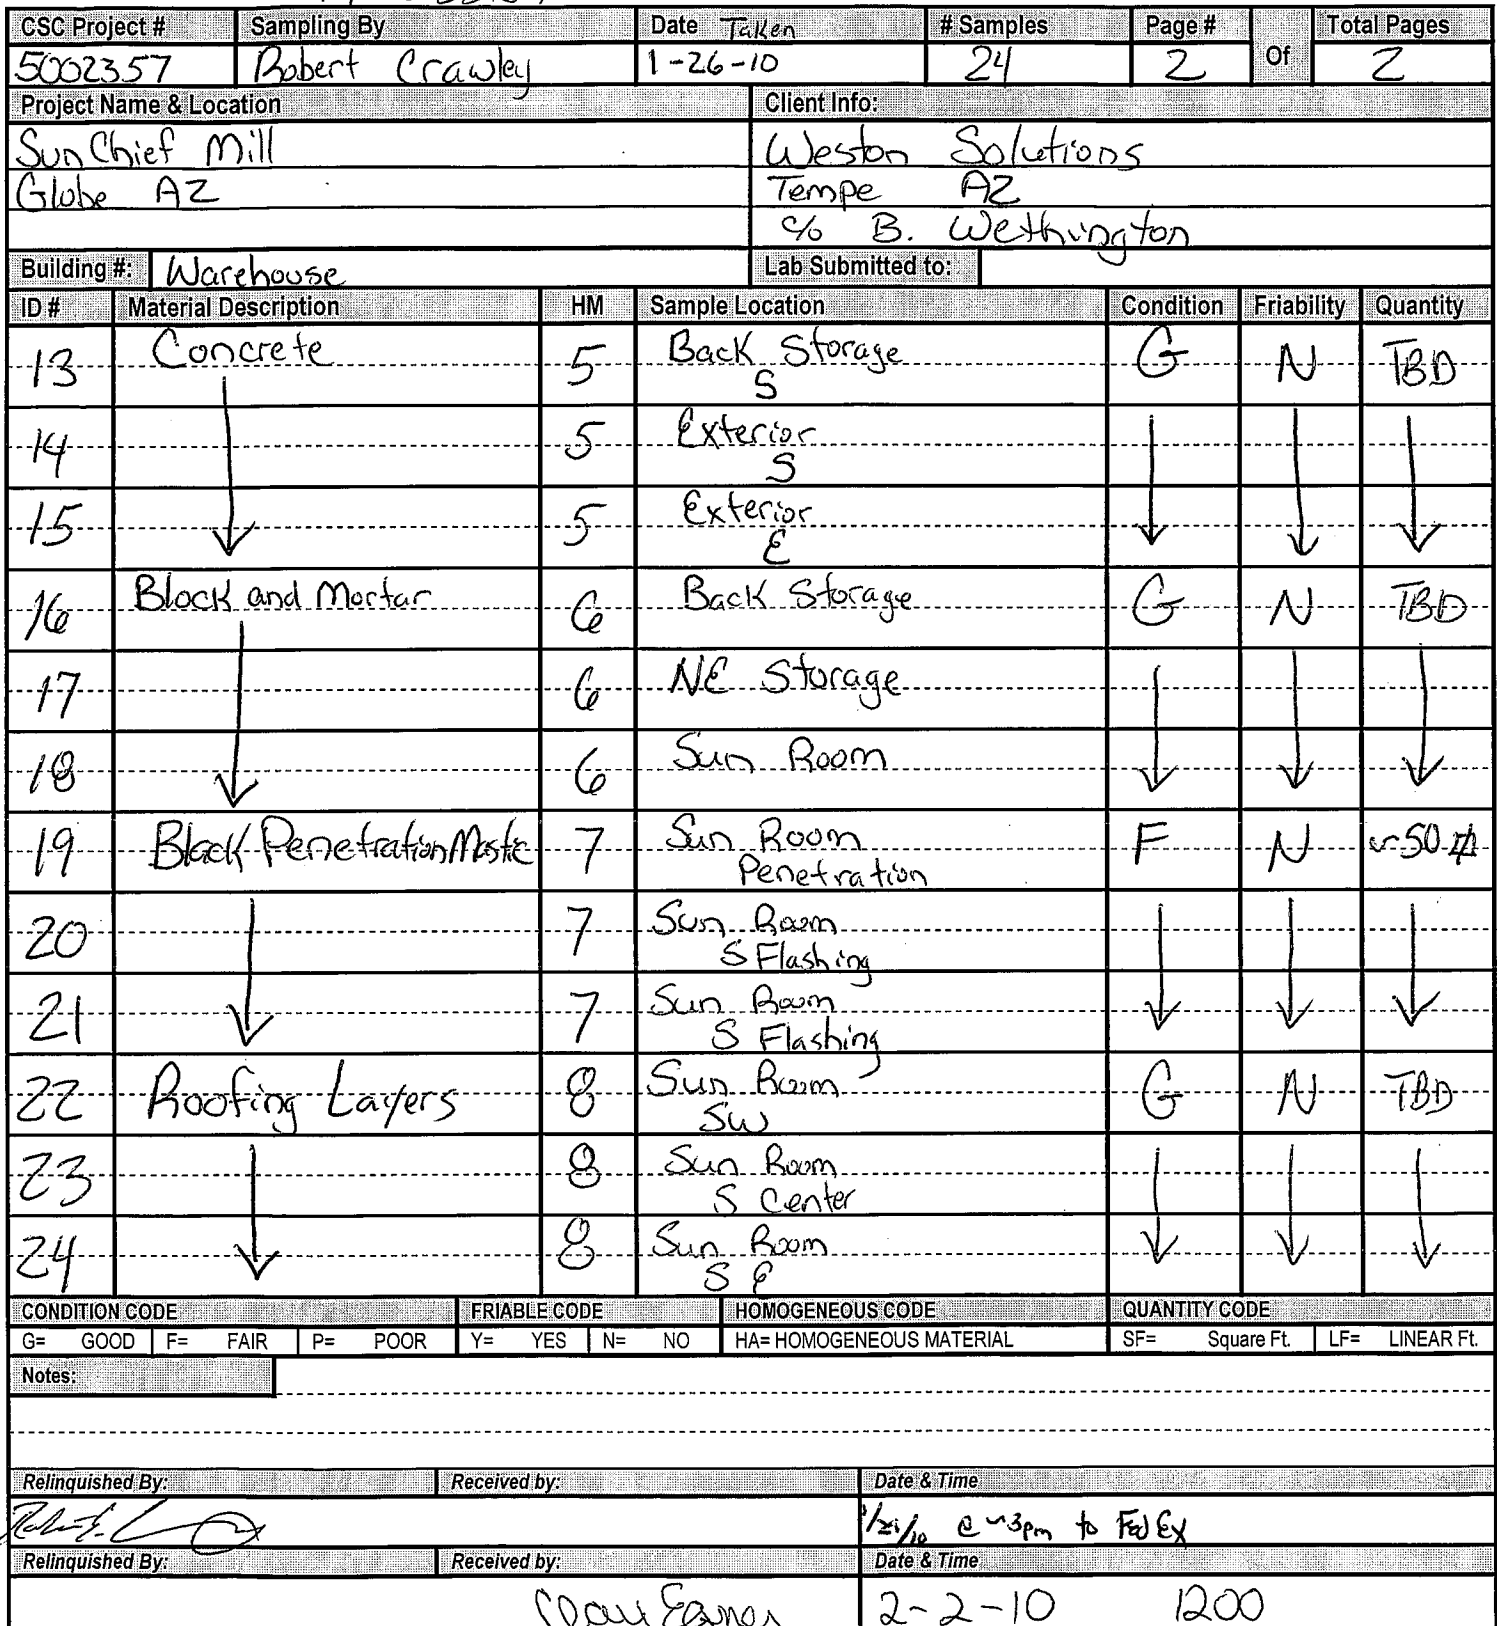 CSC Project # Sampling By Date Taken # Samples Page # Of Total Pages
5002357 Robert Crawley 1-26-10 24 2 2
Project Name & Location Client Info:
Sun Chief Mill Weston Solutions
Globe AZ Tempe AZ
c/o B. Wethington
Building #: Warehouse Lab Submitted to:
ID # Material Description HM Sample Location Condition Friability Quantity
13 Concrete 5 Back Storage G N TBD
S
14 5 Exterior
S
15 5 Exterior
E
16 Block and Mortar 6 Back Storage G N TBD
17 6 NE Storage
18 6 Sun Room
19 Black Penetration Mastic 7 Sun Room F N ~50
Penetration
20 7 Sun Room
S Flashing
21 7 Sun Room
S Flashing
22 Roofing Layers 8 Sun Room G N TBD
SW
23 8 Sun Room
S Center
24 8 Sun Room
S E
CONDITION CODE FRIABLE CODE HOMOGENEOUS CODE QUANTITY CODE
G= GOOD F= FAIR P= POOR Y= YES N= NO HA= HOMOGENEOUS MATERIAL SF= Square Ft. LF= LINEAR Ft.
Notes:
Relinquished By: Received by: Date & Time
@ ~3pm to FedEx
Relinquished By: Received by: Date & Time
2-2-10 1200